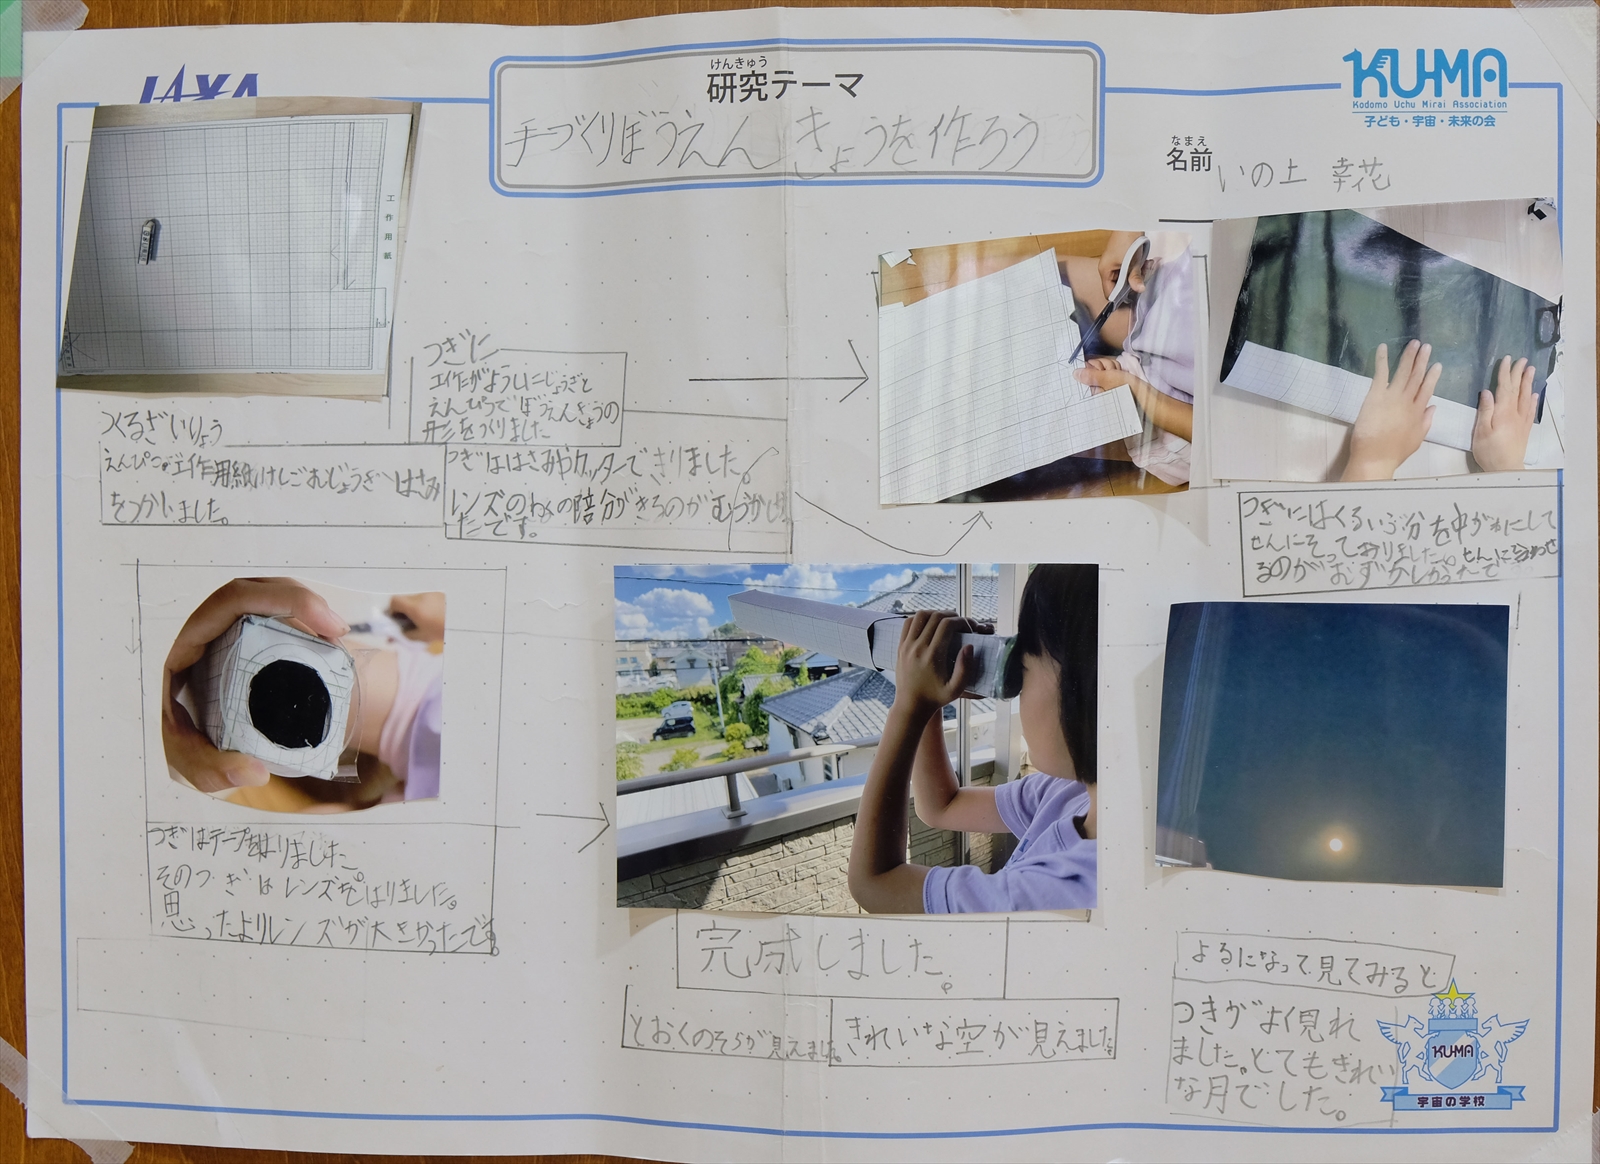 JAXA
けんきゅう
研究テーマ
手づくりぼうえんきょうを作ろう
KU-MA
Kodomo Uchu Mirai Association
子ども・宇宙・未来の会
なまえ
名前
いの上 幸花
工作用紙
つくるざいりょう
えんぴつ。工作用紙けしごむじょうぎはさみ
をつかいました。
つぎに
工作がようしにじょうぎと
えんぴつでぼうえんきょうの
形をつくりました
つぎははさみやカッターできりました。
レンズのわくの陪分がきるのがむづかし
たです。
つぎにはくろいぶ分を中がわにして
せんにそっておりました。せんに合わせ
るのがむずかしかったで
つぎはテープをはりました。
そのつぎはレンズをはりました。
思ったよりレンズが大きかったです。
完成しました。
とおくのそらが見えました。
きれいな空が見えました
よるになって見てみると
つきがよく見れ
ました。とてもきれい
な月でした。
KU-MA
宇宙の学校